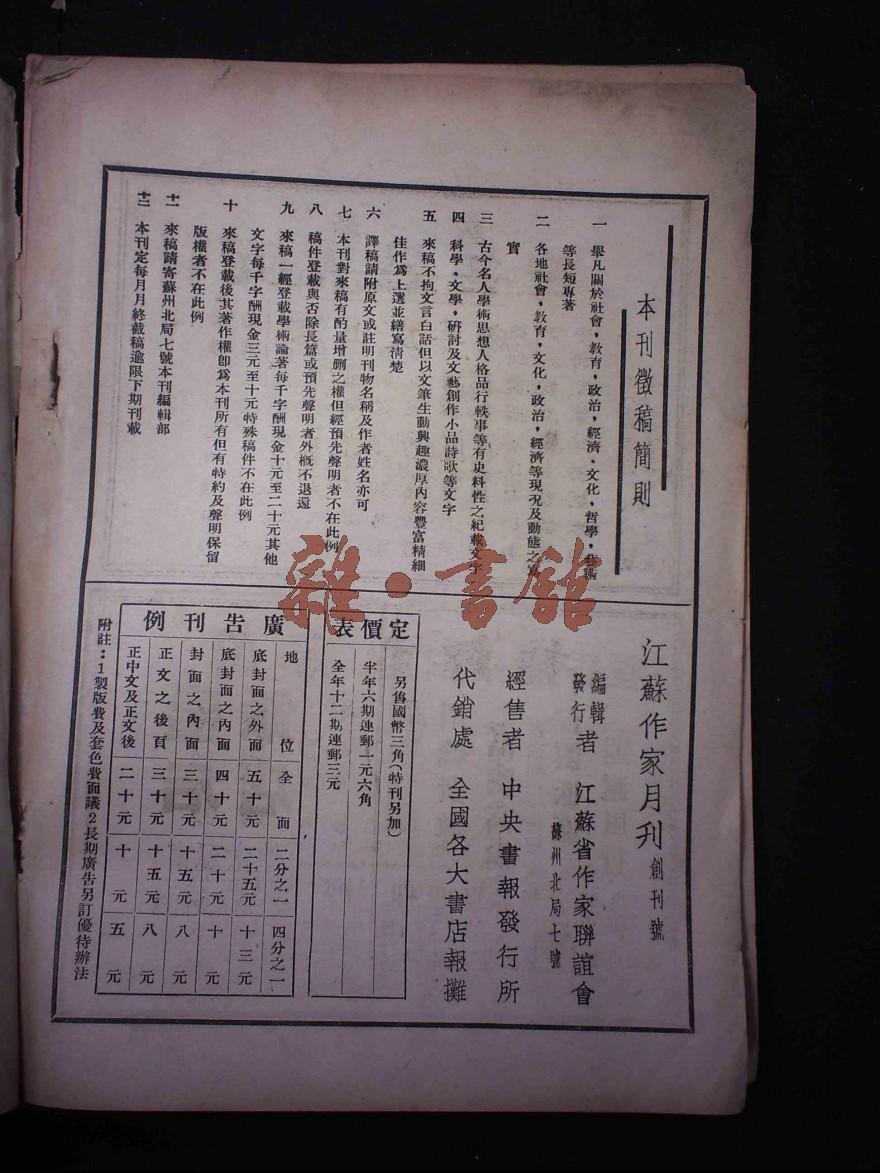 本刊徵稿簡則
一 舉凡關於社會，教育，政治，經濟，文化，哲學，藝術
等長短專著
二 各地社會，教育，文化，政治，經濟等現况及動態之
實
三 古今名人學術思想人格品行軼事等有史料性之紀載文字
四 科學，文學，研討及文藝創作小品詩歌等文字
五 來稿不拘文言白話但以文筆生動興趣濃厚內容豐富精細
佳作爲上選並繕寫清楚
六 譯稿請附原文或註明刊物名稱及作者姓名亦可
七 本刊對來稿有酌量增删之權但經預先聲明者不在此例
八 稿件登載與否除長篇或預先聲明者外概不退還
九 來稿一經登載學術論著每千字酬現金十元至二十元其他
文字每千字酬現金三元至十元特殊稿件不在此例
十 來稿登載後其著作權卽爲本刊所有但有特約及聲明保留
版權者不在此例
十一 來稿請寄蘇州北局七號本刊編輯部
十二 本刊定每月月終截稿逾限下期刊載
江蘇作家月刊 創刊號
編輯發行者 江蘇省作家聯誼會
蘇州北局七號
經售者 中央書報發行所
代銷處 全國各大書店報攤
定價表
另售國幣三角（特刊另加）
半年六期連郵一元六角
全年十二期連郵三元
廣告刊例
地位 全面 二分之一 四分之一
底封面之外面 五十元 二十五元 十三元
底封面之內面 四十元 二十元 十元
封面之內面 三十元 十五元 八元
正文之後頁 三十元 十五元 八元
正中文及正文後 二十元 十元 五元
附註：1製版費及套色費面議2長期廣告另訂優待辦法
雜·書館